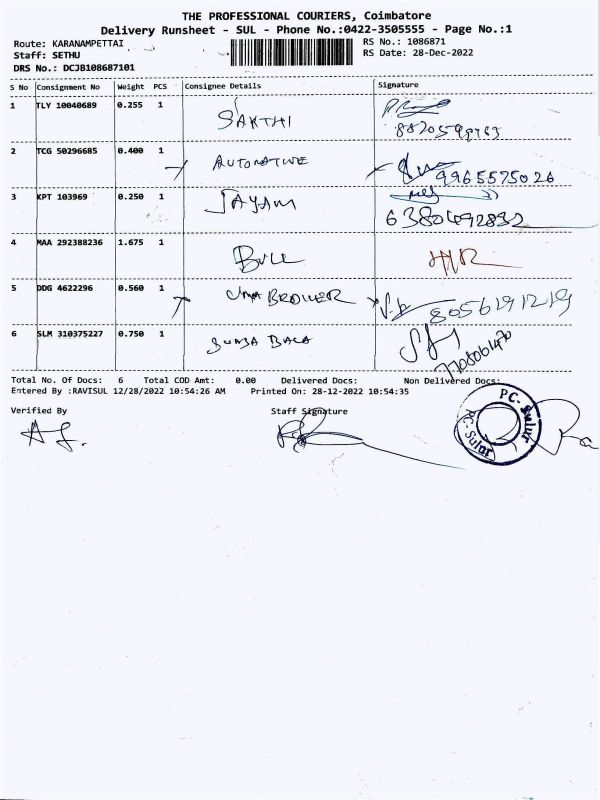 THE PROFESSIONAL COURIERS, Coimbatore
Delivery Runsheet - SUL - Phone No.:0422-3505555 - Page No.:1
Route: KARANAMPETTAI
Staff: SETHU
DRS No.: DCJB108687101
RS No.: 1086871
RS Date: 28-Dec-2022
S No Consignment No Weight PCS Consignee Details Signature
1 TLY 10040689 0.255 1 SAKTHI
2 TCG 50296685 0.400 1 AUTOMATIVE 9965575026
3 KPT 103969 0.250 1 JAYAM
4 MAA 292388236 1.675 1 BULL
5 DDG 4622296 0.560 1 UMA BROILER 8056191219
6 SLM 310375227 0.750 1 BALA
Total No. Of Docs: 6 Total COD Amt: 0.00 Delivered Docs: Non Delivered Docs:
Entered By :RAVISUL 12/28/2022 10:54:26 AM Printed On: 28-12-2022 10:54:35
Verified By Staff Signature
PC-Sulur
PC-Sulur